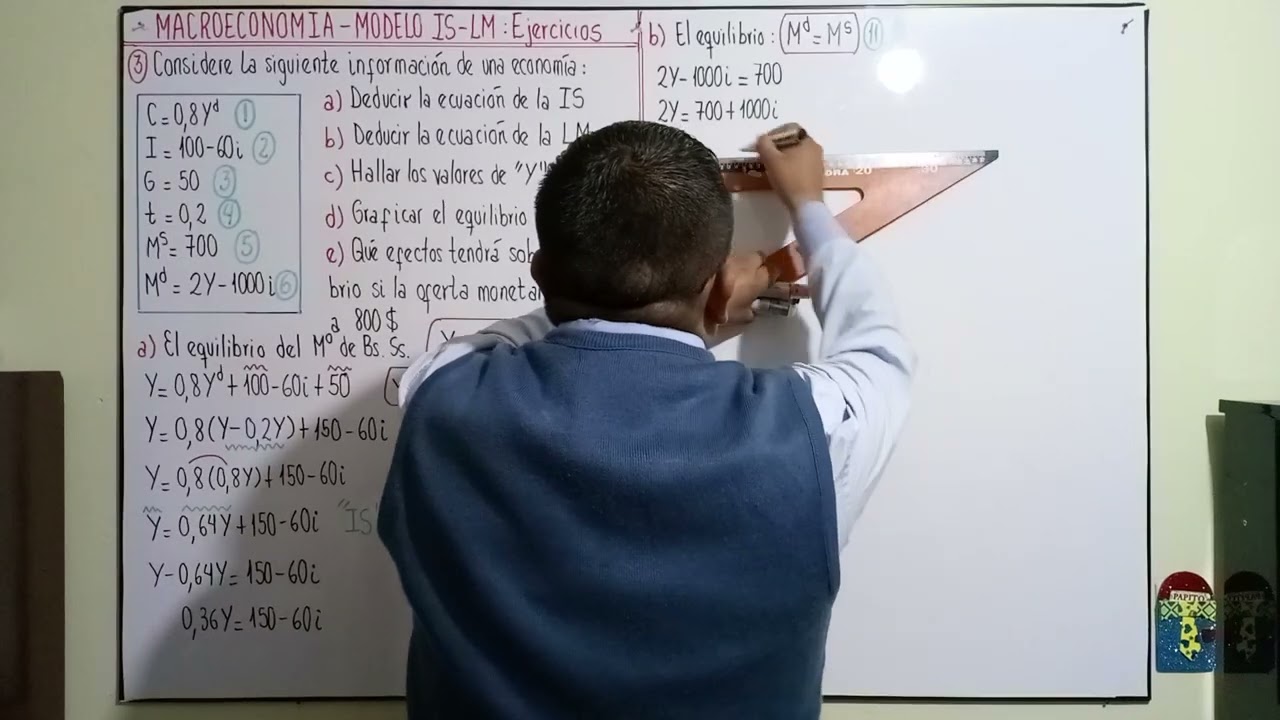 MACROECONOMIA - MODELO IS-LM : Ejercicios
③ Considere la siguiente información de una economía :
C = 0,8Yᵈ ①
I = 100-60i ②
G = 50 ③
t = 0,2 ④
Mˢ = 700 ⑤
Mᵈ = 2Y-1000i ⑥
a) Deducir la ecuación de la IS
b) Deducir la ecuación de la LM
c) Hallar los valores de "Y"
d) Graficar el equilibrio
e) Qué efectos tendrá
brio si la oferta
a 800 $
a) El equilibrio del Mº de Bs. Ss.
Y = 0,8Yᵈ + 100-60i + 50
Y = 0,8(Y-0,2Y) + 150-60i
Y = 0,8(0,8Y) + 150-60i
Y = 0,64Y + 150-60i "IS"
Y-0,64Y = 150-60i
0,36Y = 150-60i
b) El equilibrio : (Mᵈ = Mˢ) ⑪
2Y-1000i = 700
2Y = 700 + 1000i
20
30
PAPITO